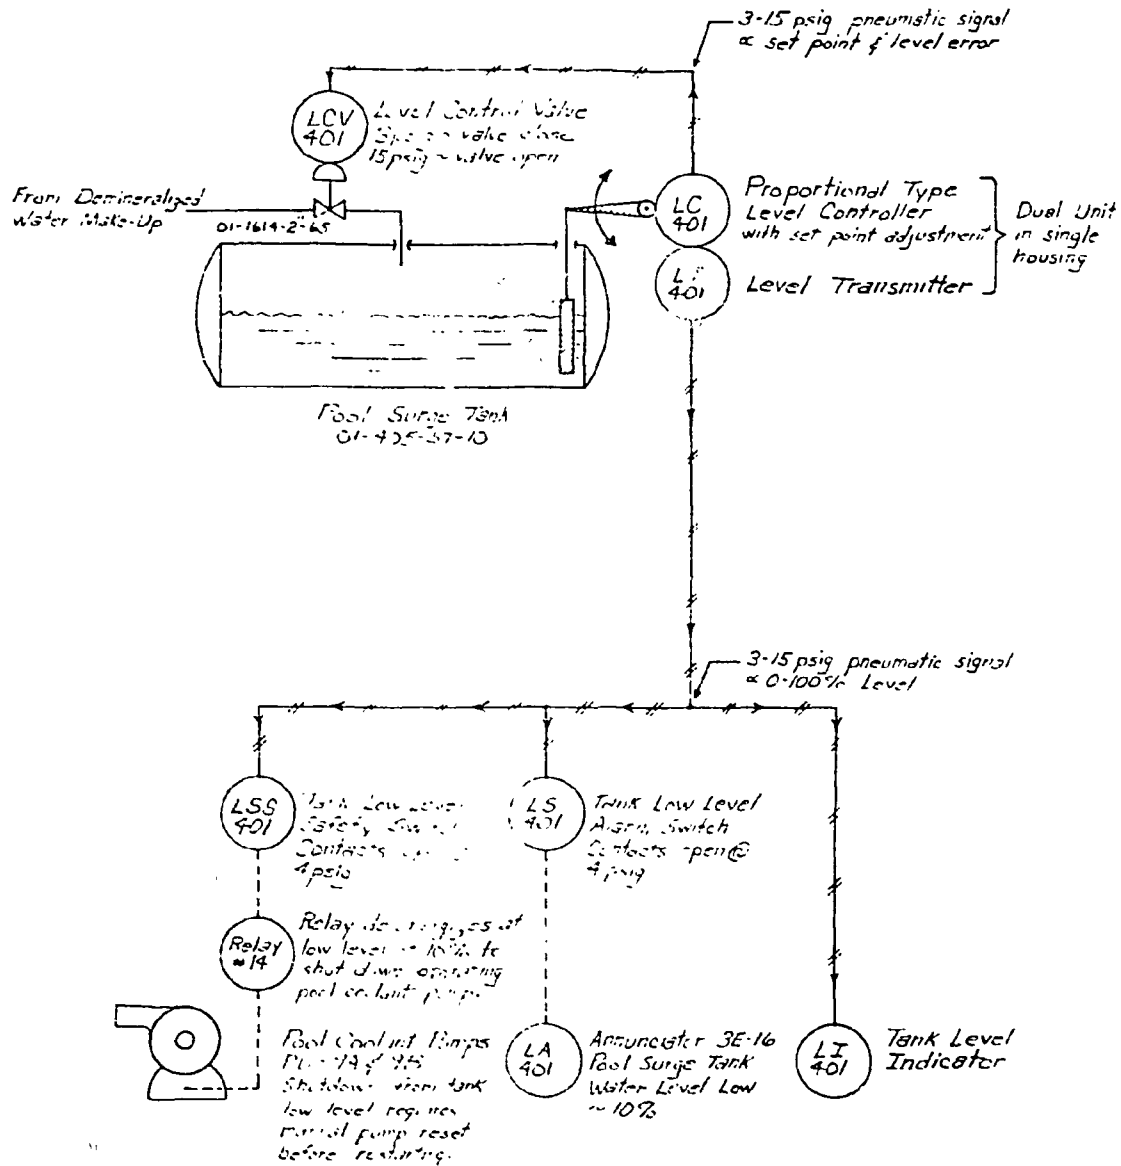 3-15 psig pneumatic signal
∝ set point & level error
LCV
401
Level Control Valve
valve close
15 psig ~ valve open
From Demineralized
Water Make-Up
01-1614-2"-65
LC
401
Proportional Type
Level Controller
with set point adjustment
Dual Unit
in single
housing
401
Level Transmitter
Pool Surge Tank
3-15 psig pneumatic signal
∝ 0-100% Level
LSS
401
Tank Low Level
Safety Switch
Contacts
4 psig
LS
401
Tank Low Level
Alarm Switch
Contacts open @
4 psig
Relay
14
Relay at
low level to
shut down operating
pool coolant pumps
Pool Coolant Pumps
Shutdown from tank
low level requires
manual pump reset
before restarting.
LA
401
Annunciator 3E-16
Pool Surge Tank
Water Level Low
~ 10%
LI
401
Tank Level
Indicator